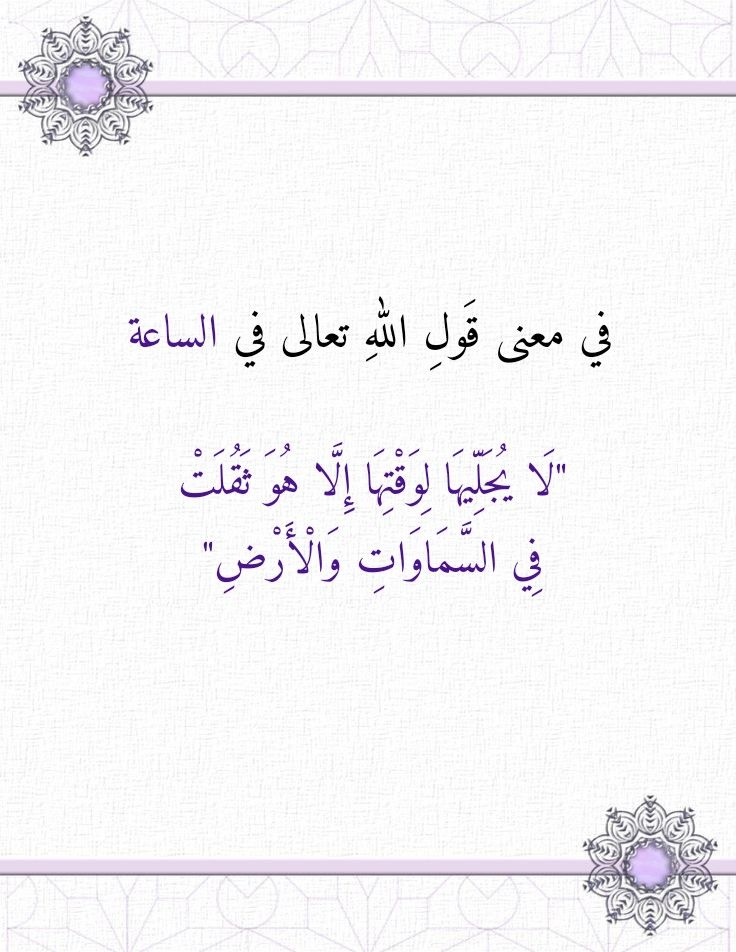 في معنى قَولِ اللهِ تعالى في الساعة
"لَا يُجَلِّيهَا لِوَقْتِهَا إِلَّا هُوَ ثَقُلَتْ
فِي السَّمَاوَاتِ وَالْأَرْضِ"